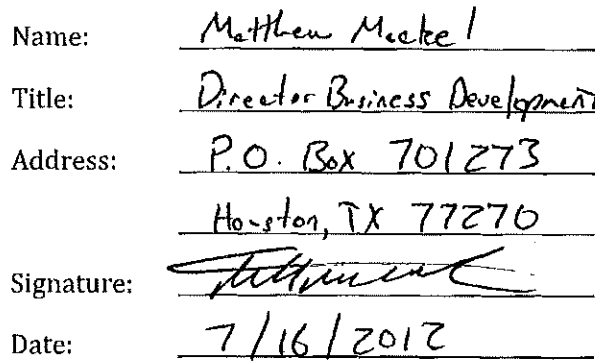 Name: Matthew Mackel
Title: Director Business Development
Address: P.O. Box 701273
Houston, TX 77270
Signature:
Date: 7/16/2012